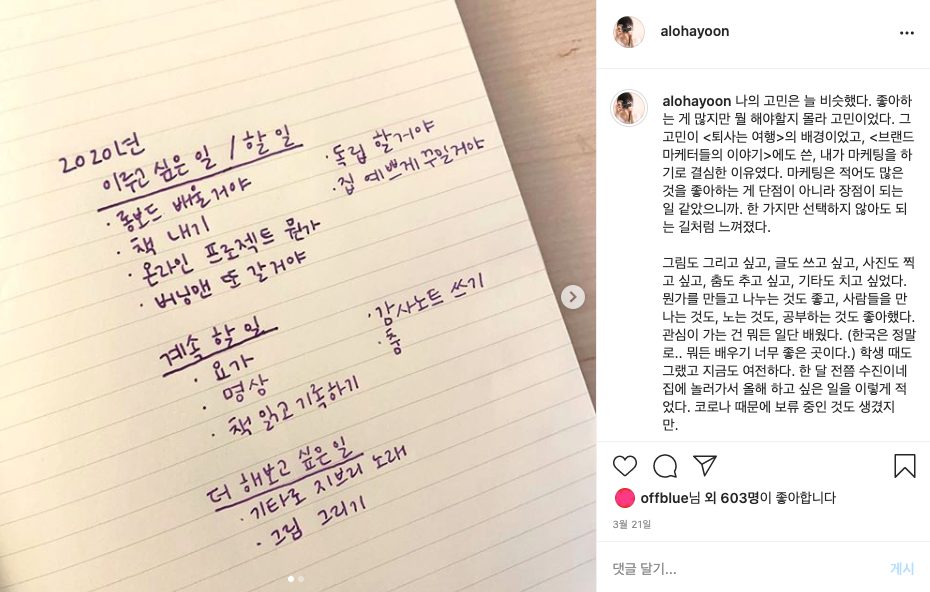 2020년
이루고 싶은 일 / 할 일
· 롱보드 배울거야
· 책 내기
· 온라인 프로젝트 뭔가
· 버닝맨 또 갈거야
· 독립 할거야
· 집 예쁘게 꾸밀거야
계속 할 일
· 요가
· 명상
· 책 읽고 기록하기
· 감사노트 쓰기
· 춤
더 해보고 싶은 일
· 기타로 지브리 노래
· 그림 그리기
alohayoon
alohayoon 나의 고민은 늘 비슷했다. 좋아하
는 게 많지만 뭘 해야할지 몰라 고민이었다. 그
고민이 <퇴사는 여행>의 배경이었고, <브랜드
마케터들의 이야기>에도 쓴, 내가 마케팅을 하
기로 결심한 이유였다. 마케팅은 적어도 많은
것을 좋아하는 게 단점이 아니라 장점이 되는
일 같았으니까. 한 가지만 선택하지 않아도 되
는 길처럼 느껴졌다.
그림도 그리고 싶고, 글도 쓰고 싶고, 사진도 찍
고 싶고, 춤도 추고 싶고, 기타도 치고 싶었다.
뭔가를 만들고 나누는 것도 좋고, 사람들을 만
나는 것도, 노는 것도, 공부하는 것도 좋아했다.
관심이 가는 건 뭐든 일단 배웠다. (한국은 정말
로.. 뭐든 배우기 너무 좋은 곳이다.) 학생 때도
그랬고 지금도 여전하다. 한 달 전쯤 수진이네
집에 놀러가서 올해 하고 싶은 일을 이렇게 적
었다. 코로나 때문에 보류 중인 것도 생겼지
만.
offblue님 외 603명이 좋아합니다
3월 21일
댓글 달기...
게시